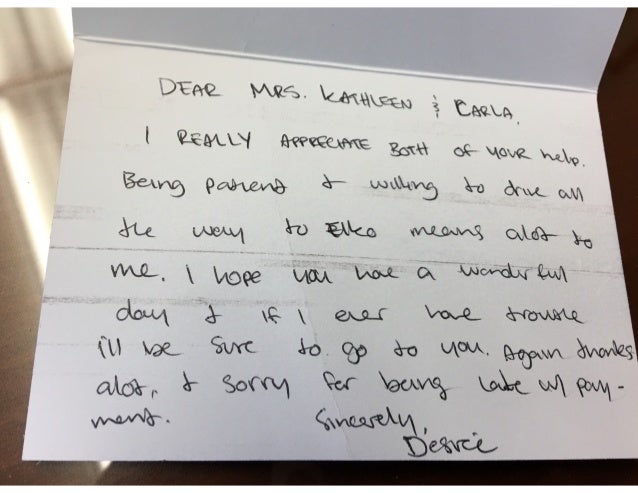 DEAR MRS. KATHLEEN & CARLA,
I REALLY APPRECIATE BOTH OF YOUR help.
Being patient & willing to drive all
the way to Elko means alot to
me. I hope you have a wonderful
day & if I ever have trouble
i'll be sure to go to you. Again thanks
alot, & sorry for being late w/ pay-
ment. Sincerely,
Desirée